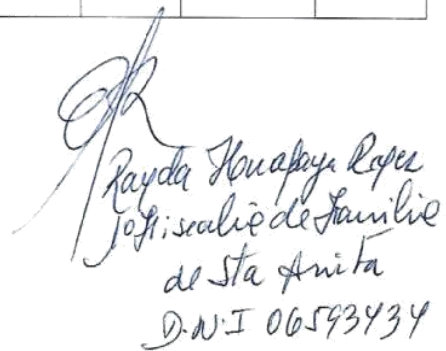 Rayda Huapaya Rojas
1º Fiscalía de Familia
de Sta Anita
D.N.I 06593434